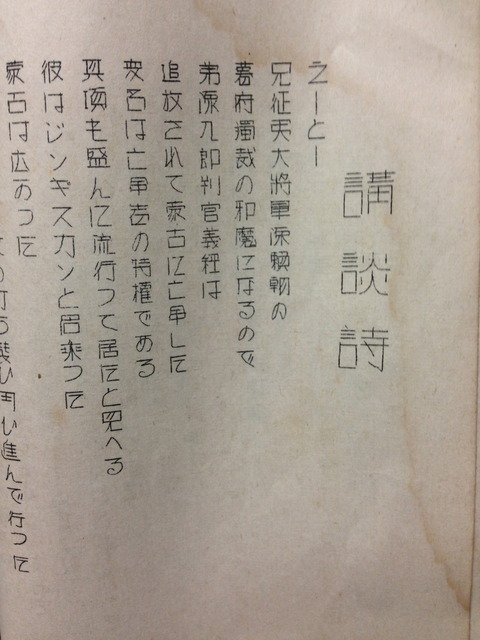 講談詩
えーとー
兄征夷大將軍源頼朝の
幕府獨裁の邪魔になるので
弟源九郎判官義経は
追放されて蒙古に亡命した
変名は亡命者の特権である
其頃も盛んに流行つて居たと見へる
彼はジンギスカンと名乗つた
蒙古は広かつた
び進んで行つた